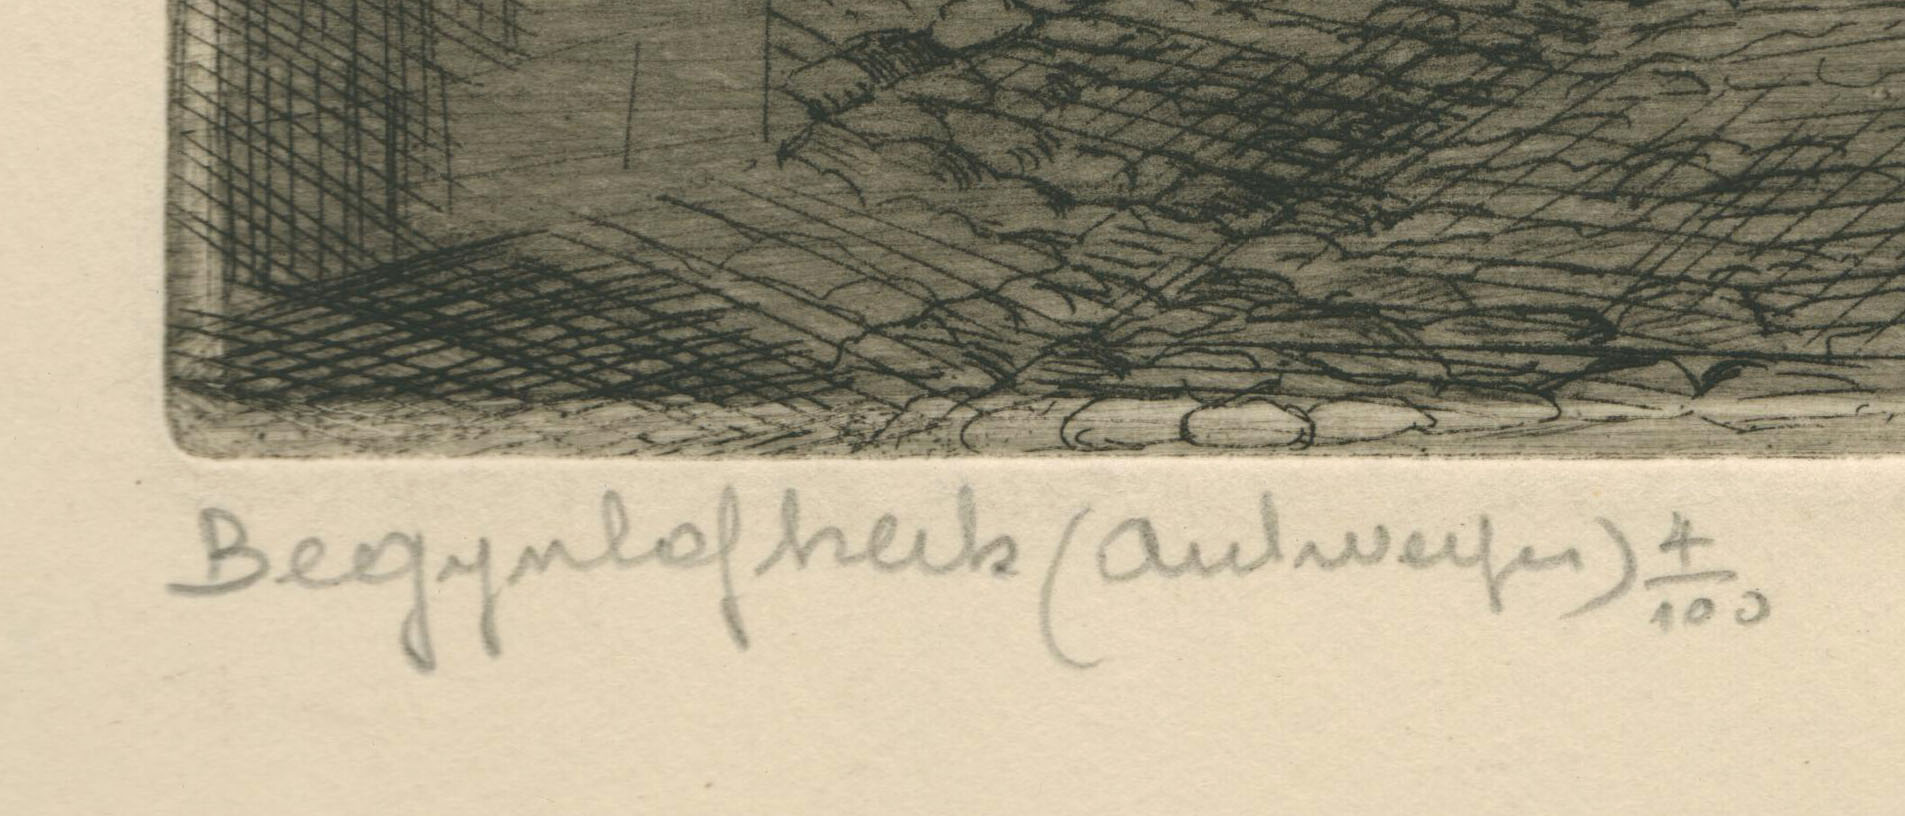 Begynhof kerk (Antwerpen) 4/100